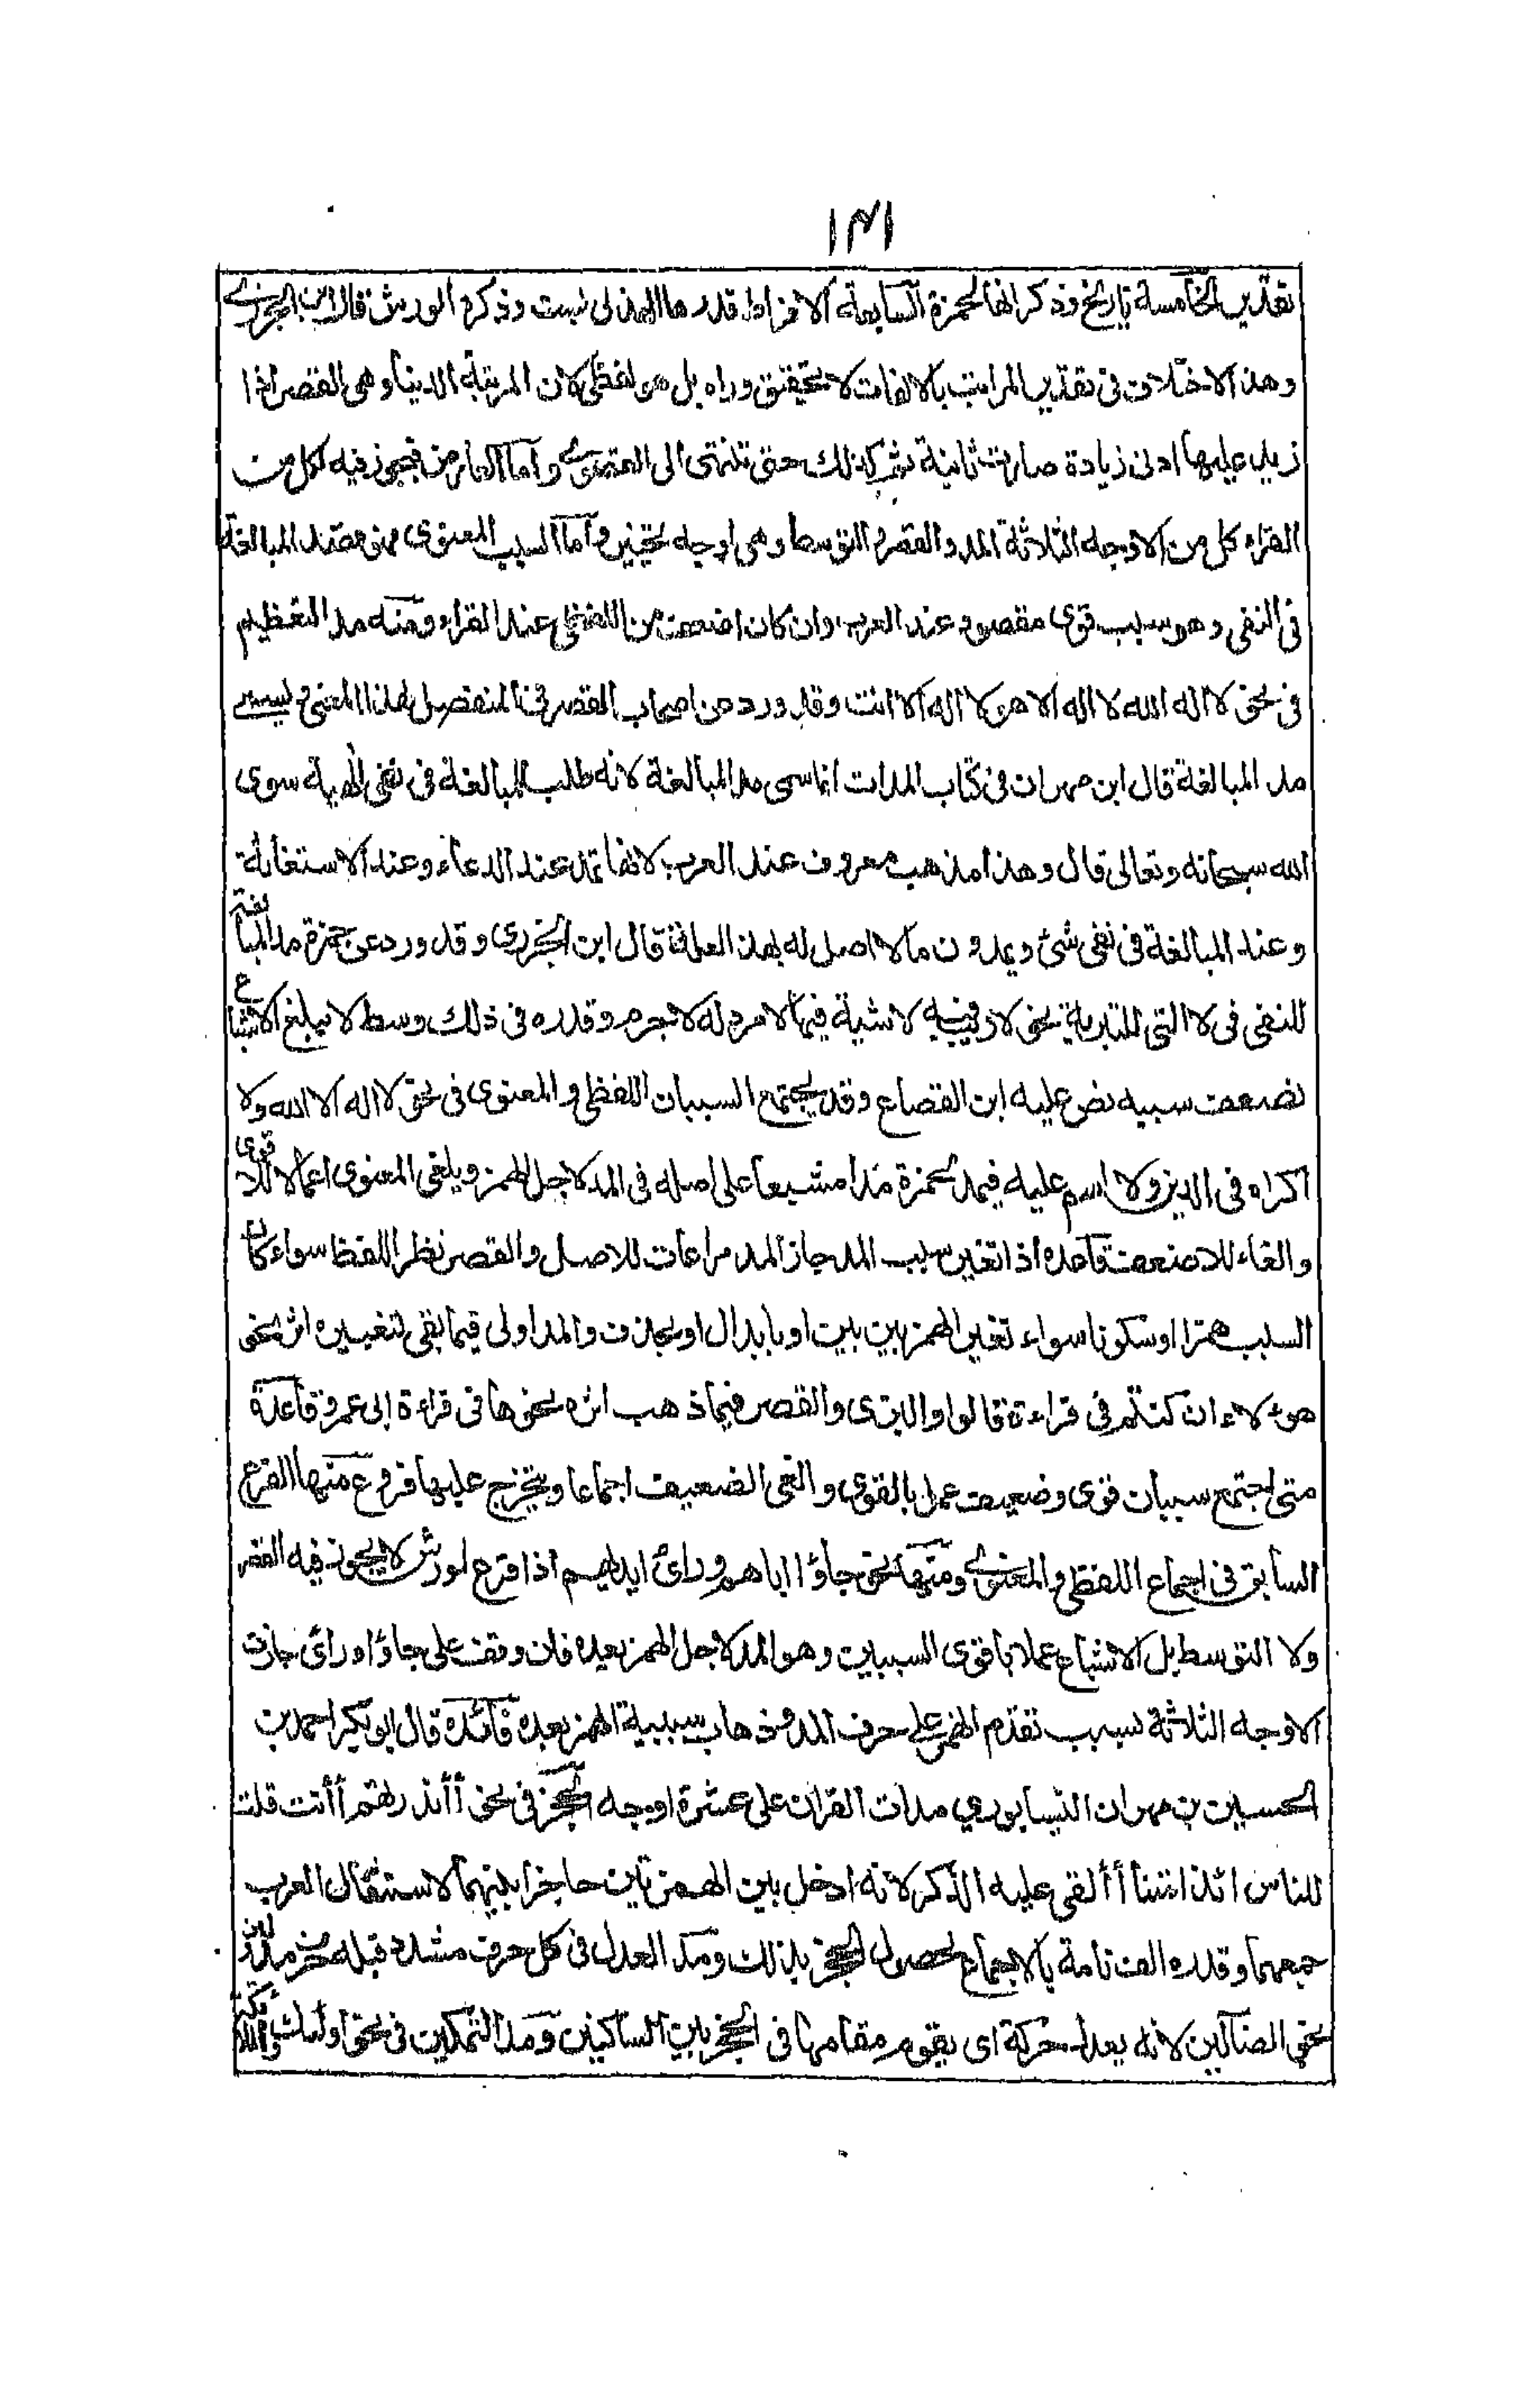 ١٣١
تقدير الخامسة باربع وذكر انها لحمزة السابعة الافراط قدرها الهذلى بست وذكره لورش قال ابن الجزرى
وهذا الاختلاف فى تقدير المراتب بالالفات لا تحقيق وراه بل هو لفظى لان المرتبة الدنيا وهى القصر اذا
زيد عليها ادنى زيادة صارت ثانية ثم كذلك حتى تنتهى الى القصوى واما العارض فيجوز فيه لكل من
القراء كل من الاوجه الثلاثة المد والقصر والتوسط وهى اوجه تخيير واما السبب المعنوى فهو قصد المبالغة
فى النفى وهو سبب قوى مقصود عند العرب وان كان اضعف من اللفظى عند القراء ومنه مد التعظيم
فى نحو لا اله الله لا اله الا هو لا اله الا انت وقد ورد من اصحاب القصر فى المنفصل لهذا المعنى ويسمى
مد المبالغة قال ابن مهران فى كتاب المدات انما سمى مد المبالغة لانه طلب للمبالغة فى نفى الهية سوى
الله سبحانه وتعالى قال وهذا مذهب معروف عند العرب لانها تمد عند الدعاء وعند الاستغاثة
وعند المبالغة فى نفى شئ ويمدون ما لا اصل له بهذه العلة قال ابن الجزرى وقد ورد عن حمزة مد المبالغة
للنفى فى لا التى للتبرية نحو لا ريب فيه لا شية فيها لا مرد له لا جرم وقدره فى ذلك وسط لا يبلغ الاشباع
لضعف سببه نص عليه ابن القصاع وقد يجتمع السببان اللفظى والمعنوى فى نحو لا اله الا الله ولا
اكراه فى الدين ولا اسم عليه فيمد لحمزة مدا مشبعا على اصله فى المد لاجل الهمز ويلغى المعنوى اعمالا للاقوى
والغاء للاضعف قاعده اذا تغير سبب المد جاز المد مراعات للاصل والقصر نظر اللفظ سواء كان
السبب همزا او سكونا سواء تغير الهمز بين بين او بابدال او بحذف والمد اولى فيما بقى لتغييره اثر نحو
هولاء ان كنتم فى قراءة قالوا والبزى والقصر فيما ذهب اثره نحو ها فى قراءة ابى عمرو قاعدة
متى اجتمع سببان قوى وضعيف عمل بالقوى والغى الضعيف اجماعا ويتخرج عليها فروع منها الفرع
السابق فى اجماع اللفظى والمعنوى ومنها نحو جاؤا اباهم وراى ايديهم اذا قرع لورش لا يجوز فيه القصر
ولا التوسط بل الاشباع عملا باقوى السببين وهو المد لاجل الهمز بعده فان وقف على جاؤا او راى جازت
الاوجه الثلاثة بسبب تقدم الهمز على حرف المد وذهاب سببية الهمز بعده فائده قال ابو بكر احمد بن
الحسين بن مهران النيسابورى مدات القران على عشرة اوجه الحجز فى نحو أأنذرتهم أأنت قلت
للناس ائذا متنا أألقى عليه الذكر لانه ادخل بين الهمزتين حاجزا بينهما لاستثقال العرب
جمعهما وقدره الف تامة بالاجماع لحصول الحجز بذلك ومد العدل فى كل حرف مشدد قبله حرف مد ولين
نحو الضالين لانه يعدل حركة اى يقوم مقامها فى الحجز بين الساكنين ومد التمكين فى نحو اولئك والملائكة